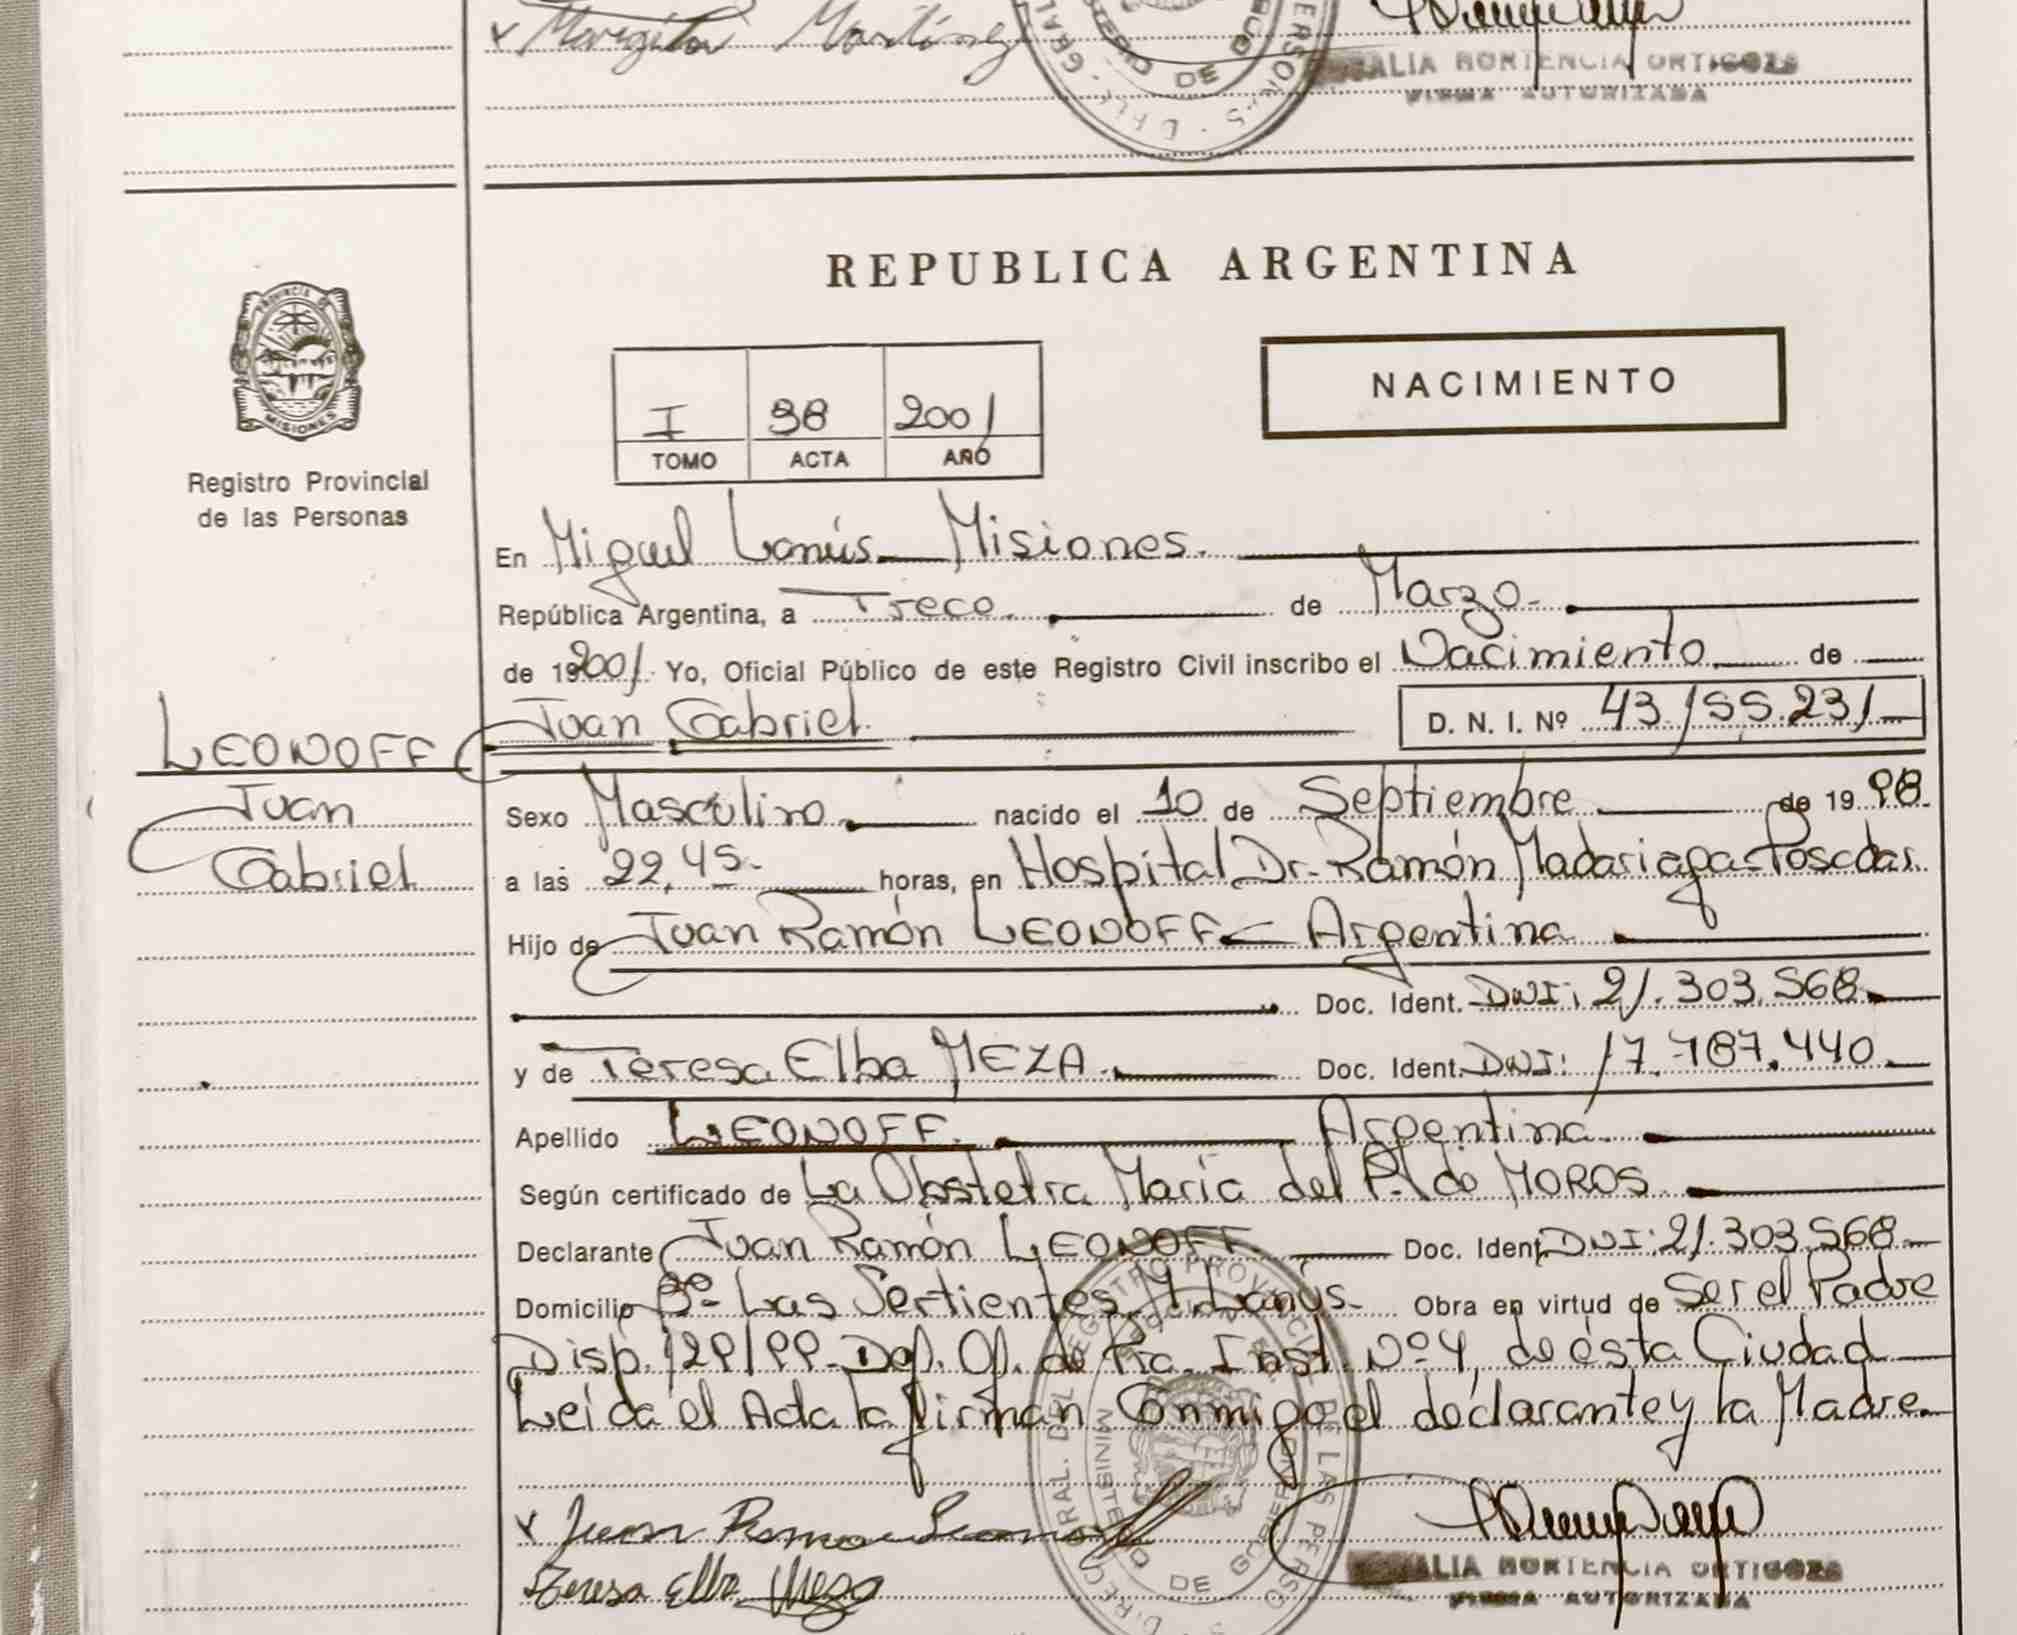 Margita Martínez
ALIA HORTENCIA ORTIGOZA
FIRMA AUTORIZADA
REPUBLICA ARGENTINA
PROVINCIA DE
MISIONES
Registro Provincial
de las Personas
NACIMIENTO
I 98 2001
TOMO ACTA AÑO
En Miguel Lanús - Misiones.
República Argentina, a Trece. de Marzo.
de 192001. Yo, Oficial Público de este Registro Civil inscribo el Nacimiento de
Juan Gabriel. D. N. I. Nº 43.155.231
LEONOFF
Juan
Gabriel
Sexo Masculino. nacido el 10 de Septiembre de 1998.
a las 22,45. horas, en Hospital Dr. Ramón Madariaga - Posadas.
Hijo de Juan Ramón LEONOFF - Argentina
Doc. Ident. DNI: 21.303.568.
y de Teresa Elba MEZA. Doc. Ident. DNI: 17.787.440.
Apellido LEONOFF. Argentina.
Según certificado de La Obstetra María del P. de MOROS.
Declarante Juan Ramón LEONOFF. Doc. Ident. DNI: 21.303.568
Domicilio Bº Las Sertientes, M. Lanús. Obra en virtud de Ser el Padre
Disp. 129/99 - Def. Of. de Pra. Inst. Nº 4, de ésta Ciudad
Leída el Acta la firman Conmigo el declarante y la Madre.
Juan Ramon Leonoff
Teresa Elba Meza
ALIA HORTENCIA ORTIGOZA
FIRMA AUTORIZADA